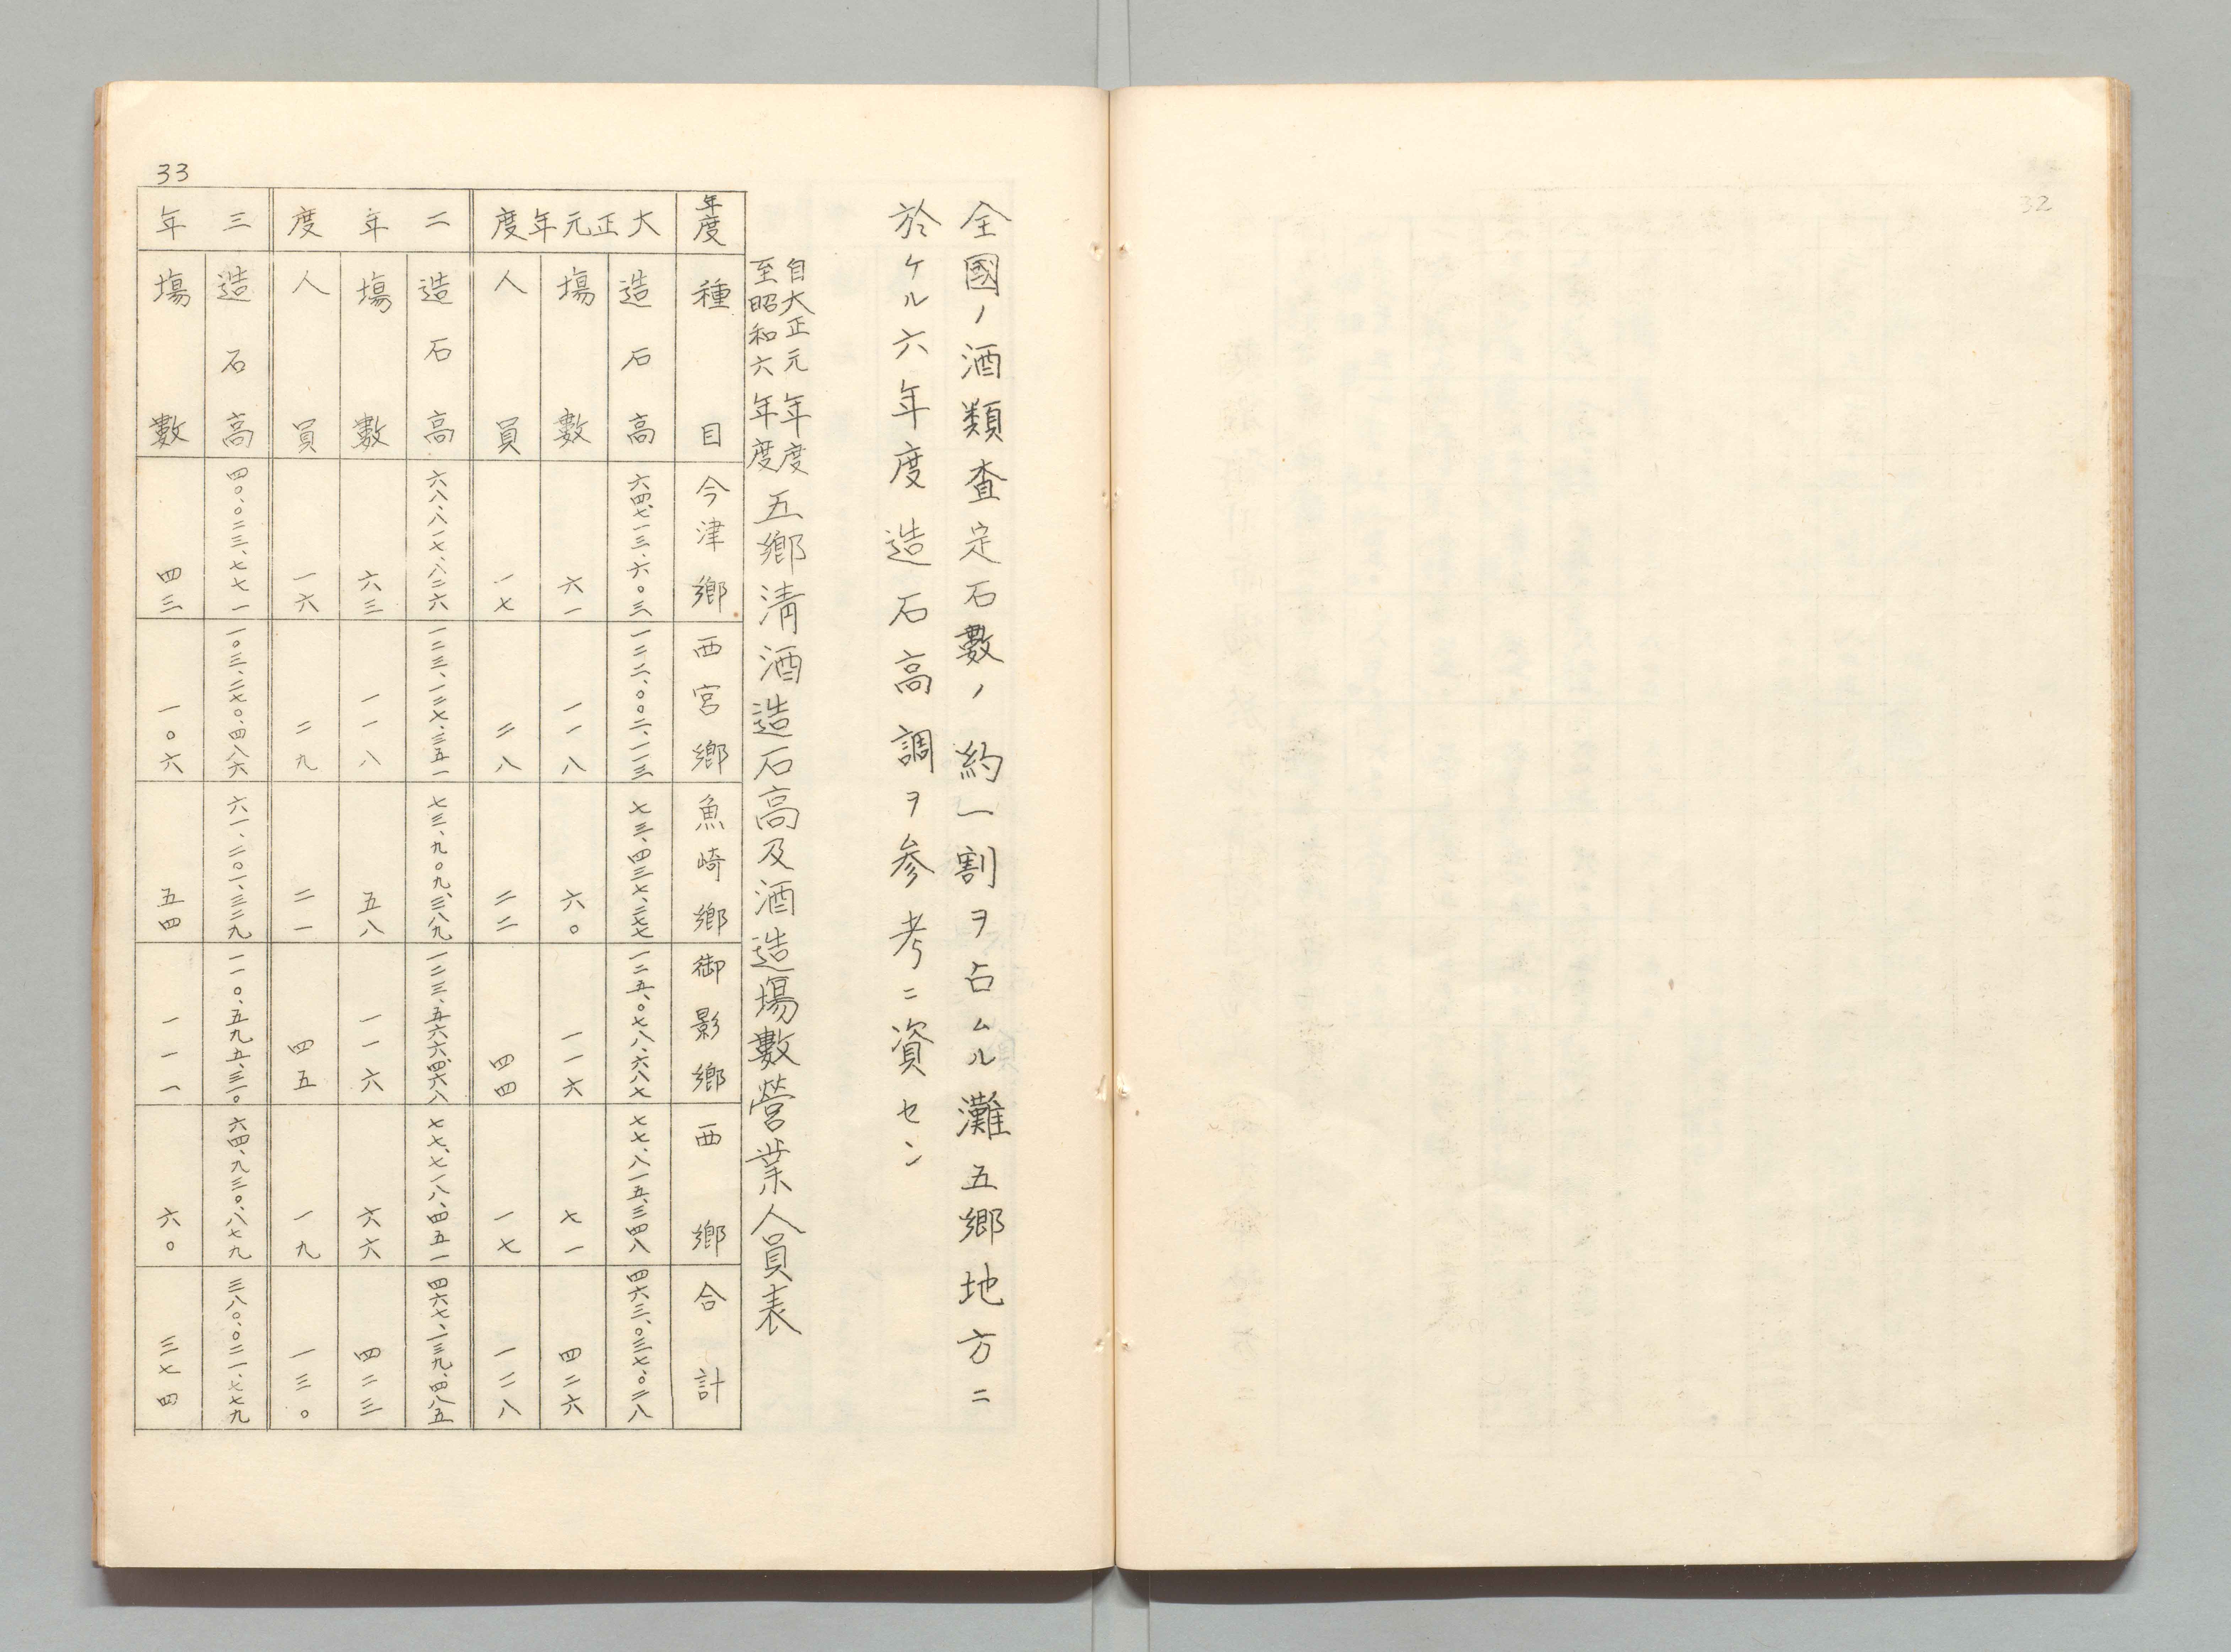 32
全國ノ酒類査定石數ノ約一割ヲ占ムル灘五郷地方ニ
於ケル六年度造石高調ヲ参考ニ資セン
自大正元年度
至昭和六年度
五郷清酒造石高及酒造場數營業人員表
年度 種目 今津郷 西宮郷 魚崎郷 御影郷 西郷 合計
大正元年度 造石高 六四、七一三、六〇三 一二二、〇〇二、一一三 七三、四三七、二七七 一二五、〇七八、六八七 七七、八一五、三四八 四六三、〇三七、〇二八
場數 六一 一一八 六〇 一一六 七一 四二六
人員 一七 二八 二二 四四 一七 一二八
二年度 造石高 六八、八一七、八二六 一二三、一二七、三五一 七三、九〇九、三八九 一二三、五六六、四六八 七七、七一八、四五一 四六七、一三九、四八五
場數 六三 一一八 五八 一一六 六六 四二三
人員 一六 二九 二一 四五 一九 一三〇
三年 造石高 四〇、〇二三、七七一 一〇三、二七〇、四八六 六一、二〇一、三二九 一一〇、五九五、三一〇 六四、九三〇、八七九 三八〇、〇二一、七七九
場數 四三 一〇六 五四 一一一 六〇 三七四
33